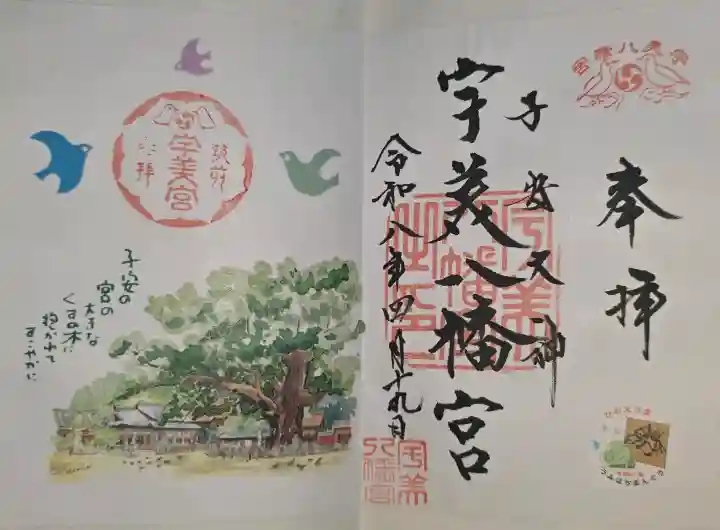 奉拝
子安大神
宇美八幡宮
令和八年四月十九日
宇美
八幡宮
筑前
宇美宮
参拝
子安の
宮の
大きな
くすの木に
抱かれて
すこやかに